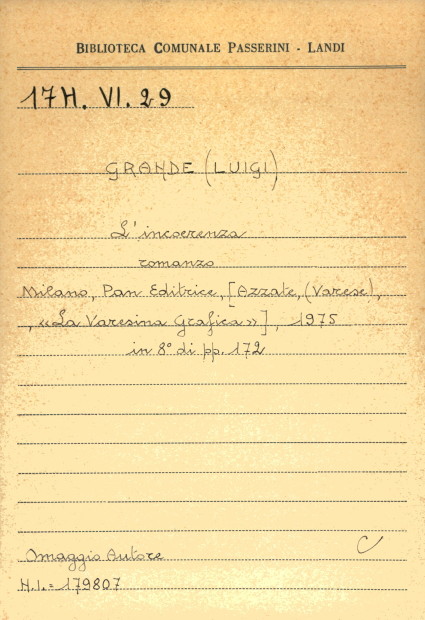 BIBLIOTECA COMUNALE PASSERINI - LANDI
17H. VI. 29
GRANDE (LUIGI)
L'incoerenza
romanzo
Milano, Pan Editrice, [Azzate, (Varese),
, «La Varesina Grafica»], 1975
in 8° di pp. 172
C
Omaggio Autore
N.I. = 179807